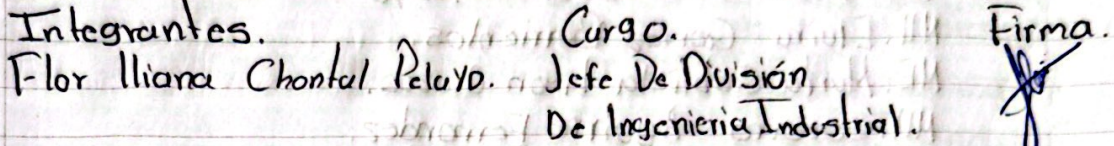 Integrantes. Cargo. Firma.
Flor Iliana Chontal Pelayo. Jefe De División
De Ingenieria Industrial.